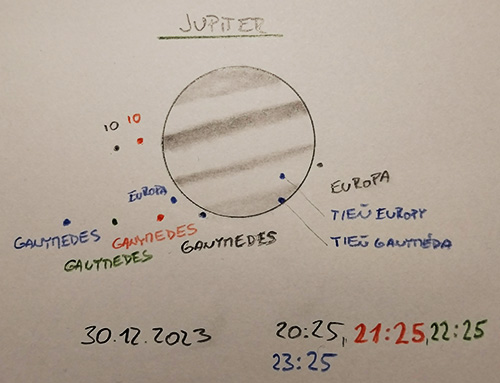 JUPITER
IO IO
EUROPA
EUROPA
TIEŇ EUROPY
GANYMEDES GANYMEDES GANYMEDES TIEŇ GANYMÉDA
GANYMEDES
30.12.2023 20:25, 21:25, 22:25
23:25